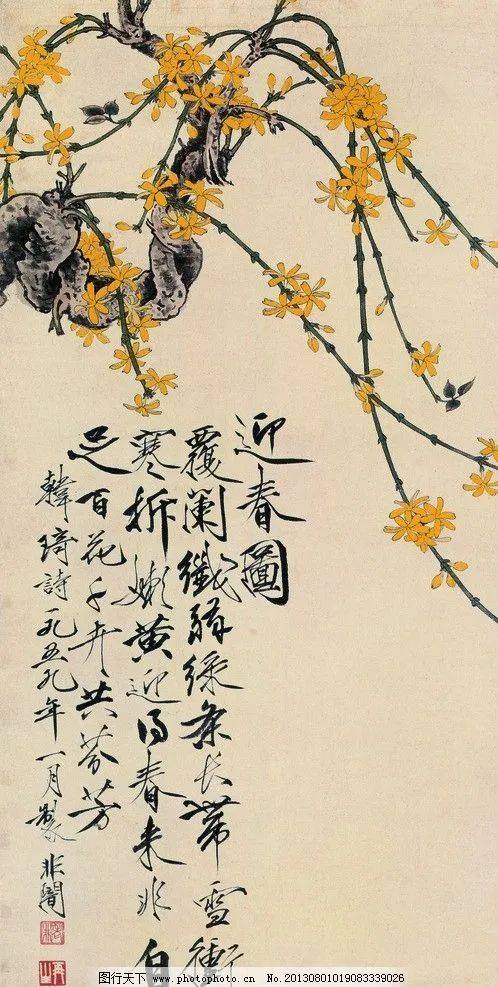 迎春圖
覆闌纖弱綠条长帶雪衝
寒折嫩黄迎得春来非自
足百花千卉共芬芳
韓琦詩一九五九年一月製非闇
图行天下 www.photophoto.cn No.20130801019083339026